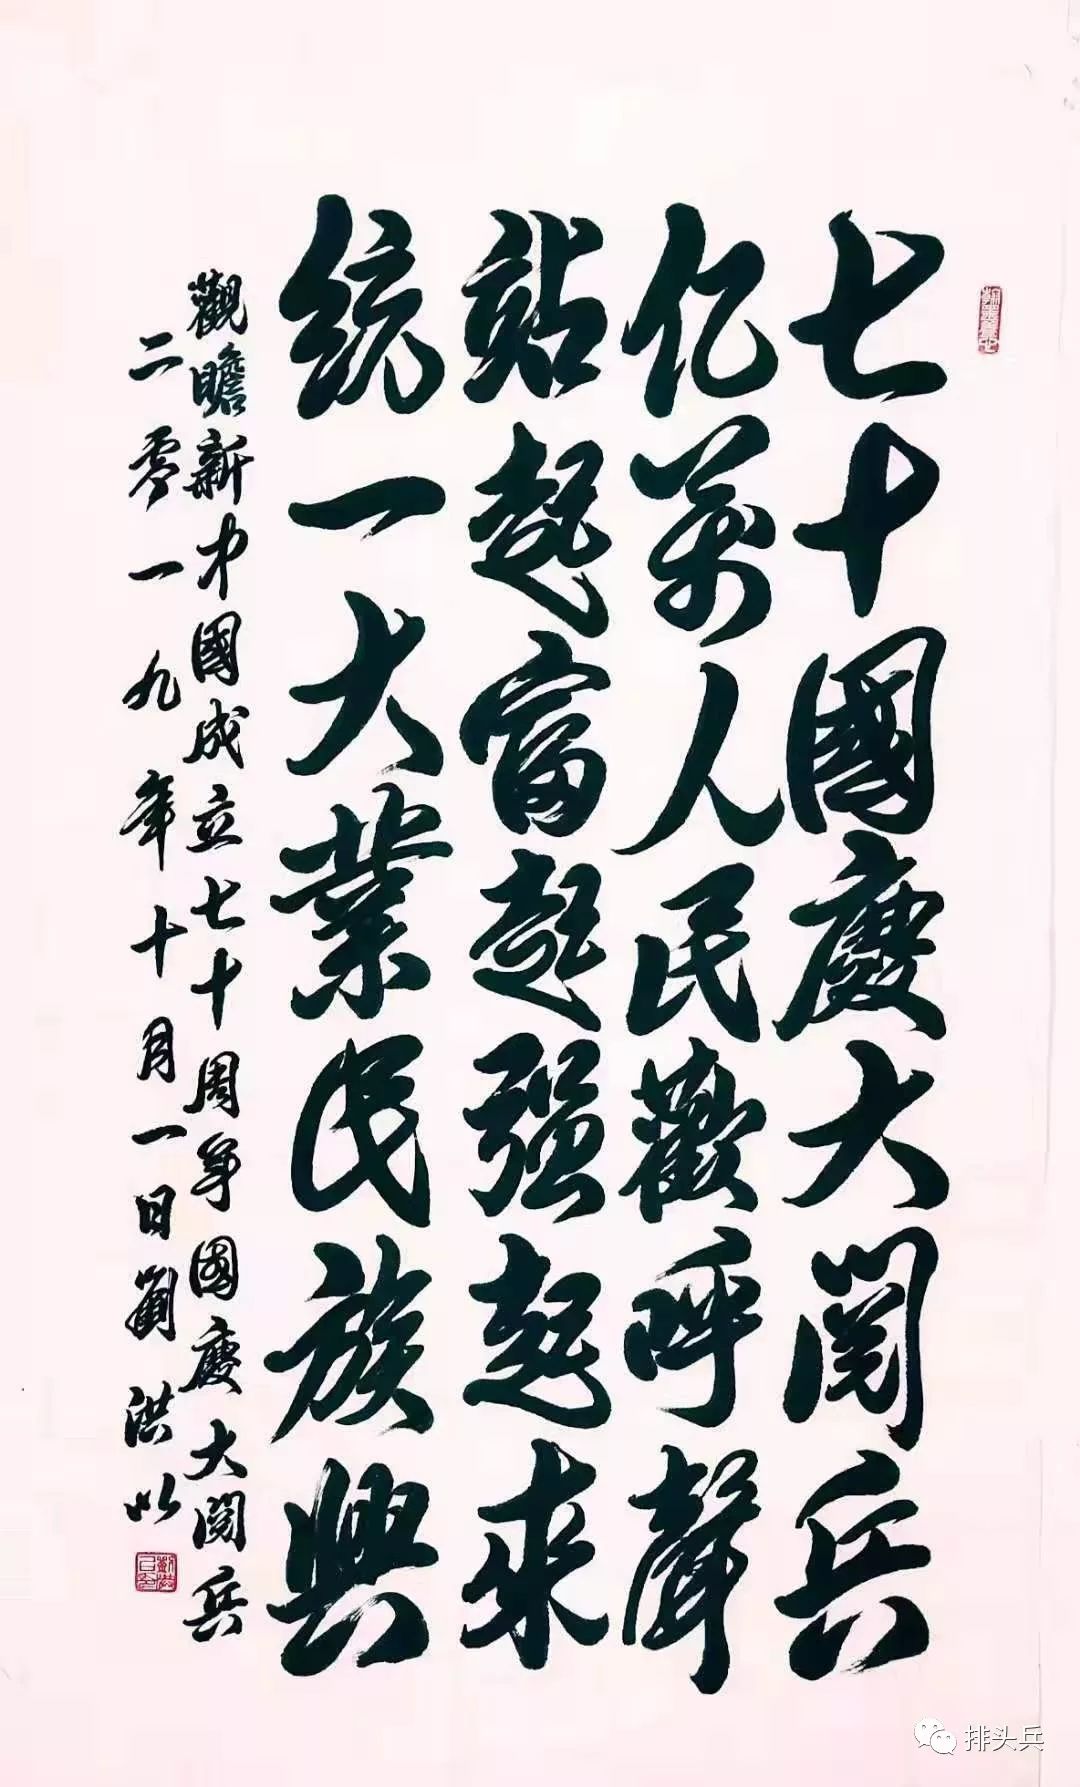 七十國慶大閱兵
亿萬人民歡呼聲
站起富起强起来
統一大業民族興
觀瞻新中國成立七十周年國慶大閱兵
二零一九年十月一日劉洪
排头兵